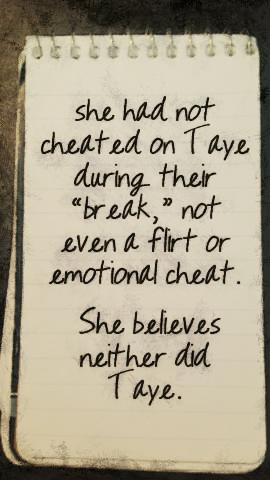 she had not
cheated on Taye
during their
“break,” not
even a flirt or
emotional cheat.
She believes
neither did
Taye.